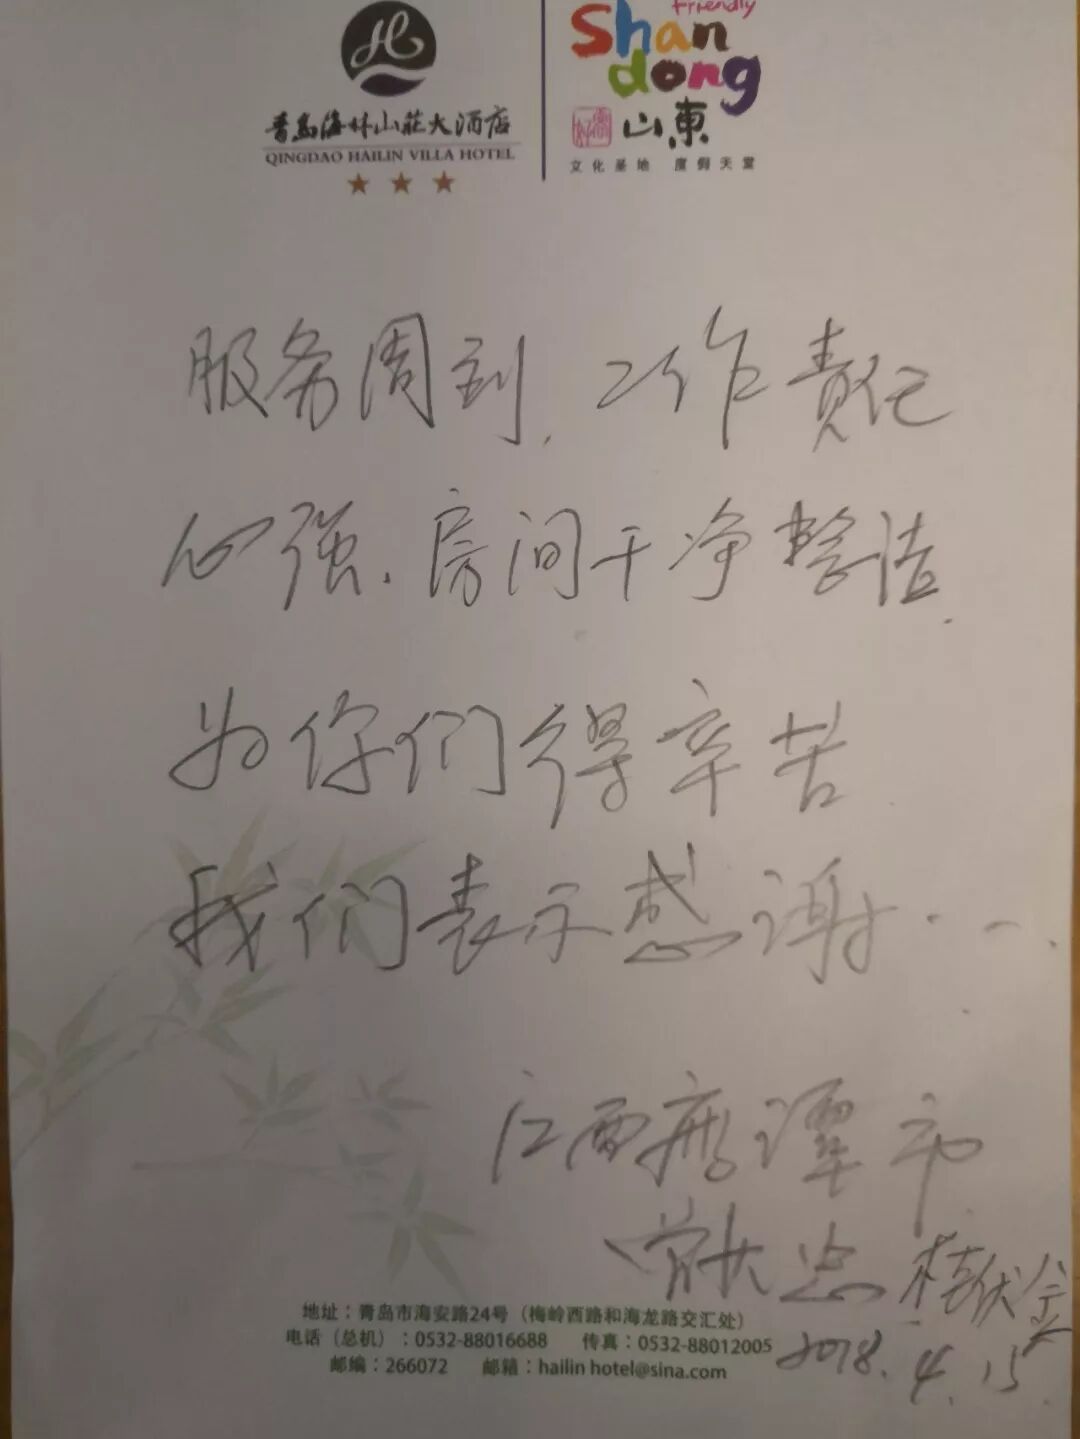 friendly
Shan
dong
青岛海林山莊大酒店
QINGDAO HAILIN VILLA HOTEL
山東
文化圣地 度假天堂
服务周到,工作责任
心强、房间干净整洁.
为你们得辛苦
我们表示感谢
江西鹰潭市
2018.4.15
地址:青岛市海安路24号(梅岭西路和海龙路交汇处)
电话(总机):0532-88016688 传真:0532-88012005
邮编:266072 邮箱:hailin hotel@sina.com